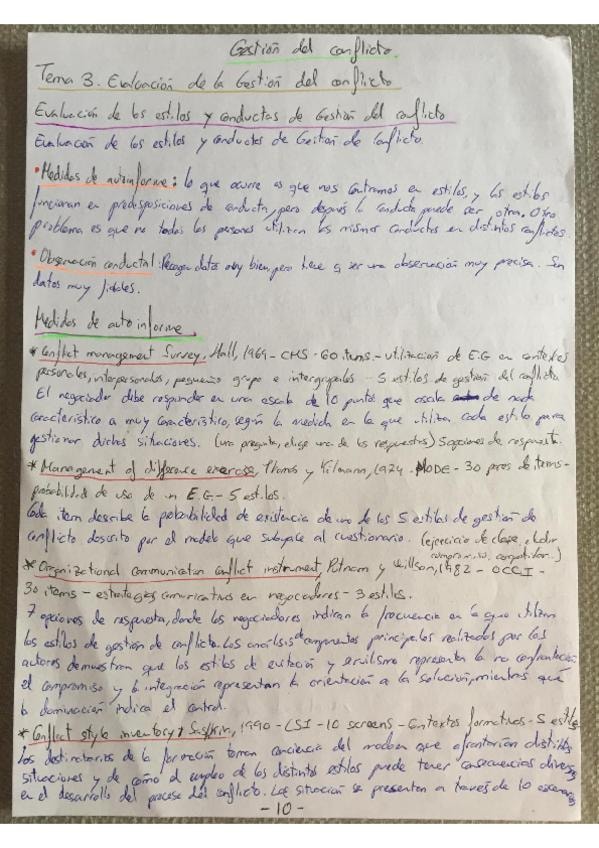 Gestión del conflicto.
Tema 3. Evaluación de la Gestión del conflicto
Evaluación de los estilos y conductas de Gestión del conflicto
Evaluación de los estilos y conductas de Gestión de Conflicto.
• Medidas de autoinforme: lo que ocurre es que nos centramos en estilos, y los estilos
funcionan en predisposiciones de conducta, pero después la conducta puede ser otra. Otro
problema es que no todas las personas utilizan las mismas conductas en distintos conflictos.
• Observación conductual: Recogen datos muy bien, pero tiene q ser una observación muy precisa. Son
datos muy fiables.
Medidas de autoinforme
* Conflict management Survey, Hall, 1969 - CMS - 60 items. - utilización de E.G en contextos
personales, interpersonales, pequeño grupo e intergrupales - 5 estilos de gestión del conflicto
El negociador debe responder en una escala de 10 puntos que oscila de nada
característico a muy característico, según la medida en la que utiliza cada estilo para
gestionar dichas situaciones. (una pregunta, elige una de las respuestas) 5 opciones de respuesta.
* Management of difference exercise, Thomas y Kilmann, 1974. MODE - 30 pares de items -
probabilidad de uso de un E.G - 5 estilos.
Cada item describe la probabilidad de existencia de uno de los 5 estilos de gestión de
conflicto descrito por el modelo que subyace al cuestionario. (ejercicio de clase,
compromiso, competidor..)
* Organizational communication conflict instrument, Putnam y Willson, 1982 - OCCI -
30 items - estrategias comunicativas en negociadores - 3 estilos.
7 opciones de respuesta, donde los negociadores indican la frecuencia en la que utilizan
los estilos de gestión de conflicto. Los análisis de componentes principales realizados por los
autores demuestran que los estilos de evitación y servilismo representan la no confrontación
el compromiso y la integración representan la orientación a la solución, mientras que
la dominación indica el control.
* Conflict style inventory, Saskin, 1990 - CSI - 10 screens - Contextos formativos - 5 estilos
los destinatarios de la formación toman conciencia del modo en que afrontarían distintas
situaciones y de cómo el empleo de los distintos estilos puede tener consecuencias diversas
en el desarrollo del proceso del conflicto. Las situación se presentan a través de 10 escenarios
- 10 -